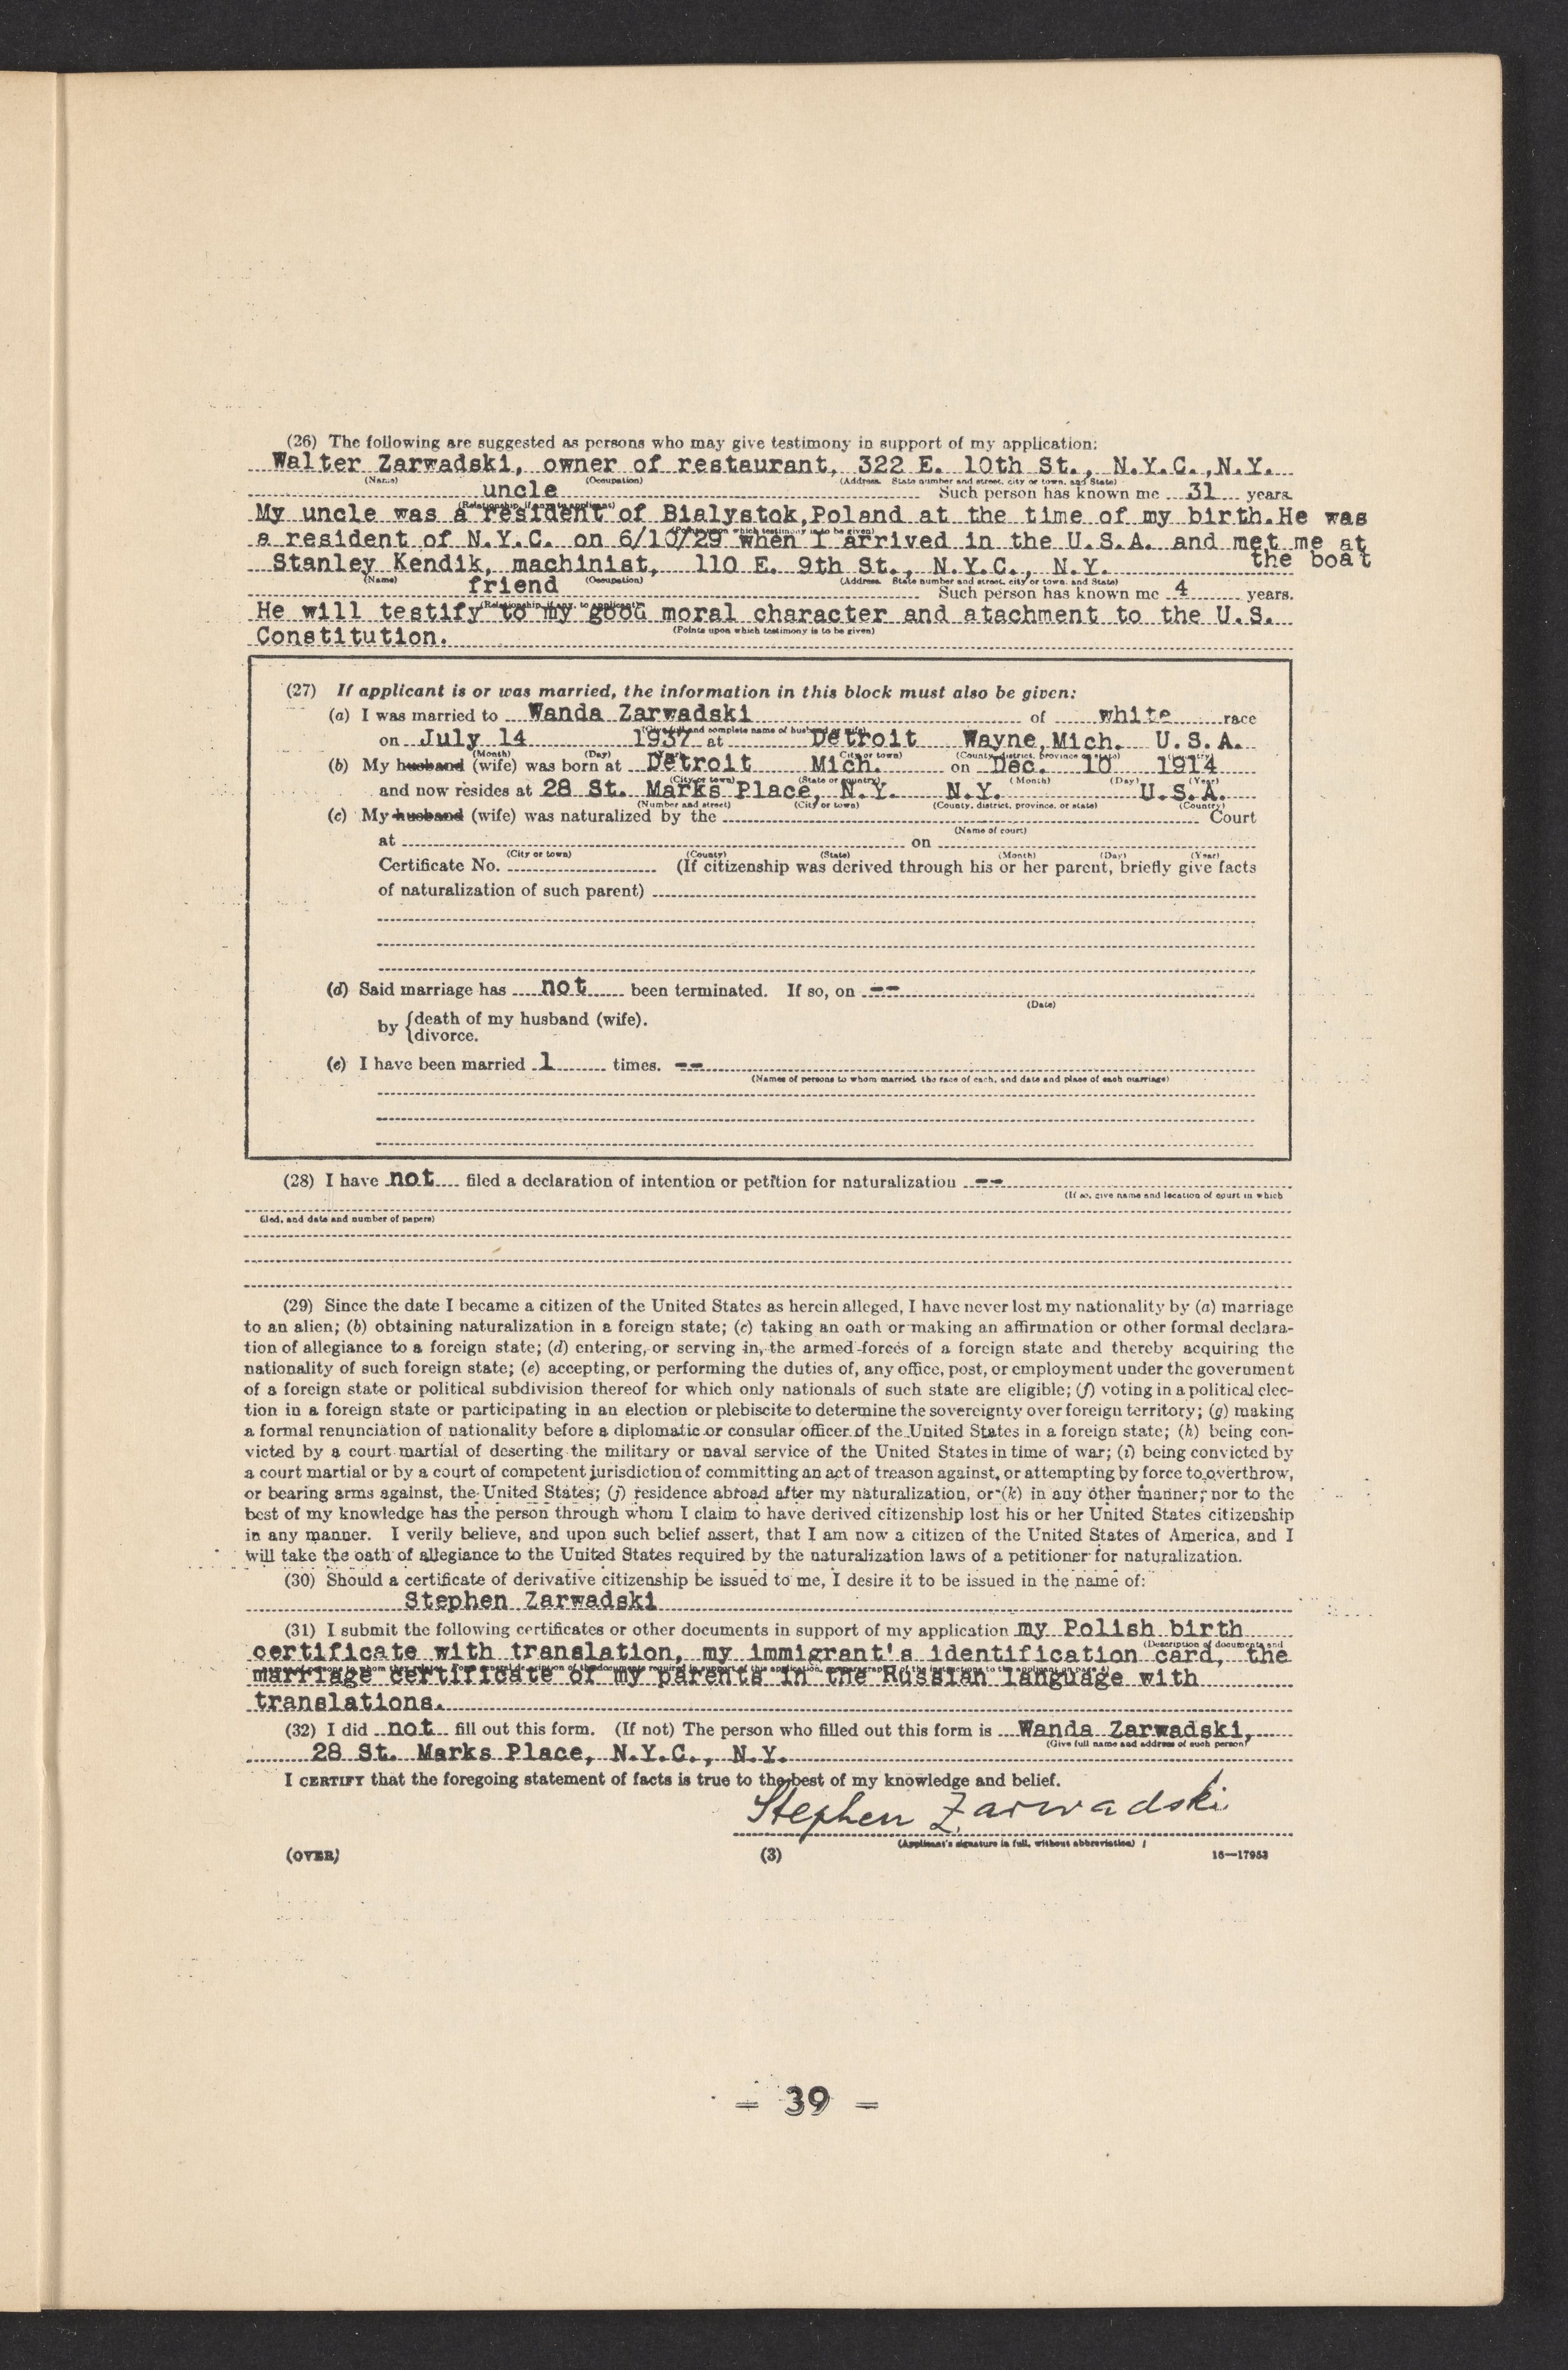 (26) The following are suggested as persons who may give testimony in support of my application:
Walter Zarwadski, owner of restaurant, 322 E. 10th St., N.Y.C.,N.Y.
(Name) (Occupation) (Address. State number and street, city or town, and State)
uncle Such person has known me 31 years.
(Relationship, if any, to applicant)
My uncle was a resident of Bialystok,Poland at the time of my birth.He was
(Points upon which testimony is to be given)
a resident of N.Y.C. on 6/10/29 when I arrived in the U.S.A. and met me at
the boat
Stanley Kendik, machinist, 110 E. 9th St., N.Y.C., N.Y.
(Name) (Occupation) (Address. State number and street, city or town, and State)
friend Such person has known me 4 years.
(Relationship, if any, to applicant)
He will testify to my good moral character and atachment to the U.S.
Constitution.
(Points upon which testimony is to be given)
(27) If applicant is or was married, the information in this block must also be given:
(a) I was married to Wanda Zarwadski of white race
(Give full and complete name of husband or wife)
on July 14 1937 at Detroit Wayne,Mich. U.S.A.
(Month) (Day) (City or town) (County, district, province or state)
(b) My husband (wife) was born at Detroit Mich. on Dec. 10 1914
(City or town) (State or country) (Month) (Day) (Year)
and now resides at 28 St. Marks Place, N.Y. N.Y. U.S.A.
(Number and street) (City or town) (County, district, province, or state) (Country)
(c) My husband (wife) was naturalized by the Court
(Name of court)
at on
(City or town) (County) (State) (Month) (Day) (Year)
Certificate No. (If citizenship was derived through his or her parent, briefly give facts
of naturalization of such parent)
(d) Said marriage has not been terminated. If so, on --
(Date)
by {death of my husband (wife).
{divorce.
(e) I have been married 1 times. --
(Names of persons to whom married, the race of each, and date and place of each marriage)
(28) I have not filed a declaration of intention or petition for naturalization --
(If so, give name and location of court in which
filed, and date and number of papers)
(29) Since the date I became a citizen of the United States as herein alleged, I have never lost my nationality by (a) marriage
to an alien; (b) obtaining naturalization in a foreign state; (c) taking an oath or making an affirmation or other formal declara-
tion of allegiance to a foreign state; (d) entering, or serving in, the armed forces of a foreign state and thereby acquiring the
nationality of such foreign state; (e) accepting, or performing the duties of, any office, post, or employment under the government
of a foreign state or political subdivision thereof for which only nationals of such state are eligible; (f) voting in a political elec-
tion in a foreign state or participating in an election or plebiscite to determine the sovereignty over foreign territory; (g) making
a formal renunciation of nationality before a diplomatic or consular officer of the United States in a foreign state; (h) being con-
victed by a court martial of deserting the military or naval service of the United States in time of war; (i) being convicted by
a court martial or by a court of competent jurisdiction of committing an act of treason against, or attempting by force to overthrow,
or bearing arms against, the United States; (j) residence abroad after my naturalization, or (k) in any other manner; nor to the
best of my knowledge has the person through whom I claim to have derived citizenship lost his or her United States citizenship
in any manner. I verily believe, and upon such belief assert, that I am now a citizen of the United States of America, and I
will take the oath of allegiance to the United States required by the naturalization laws of a petitioner for naturalization.
(30) Should a certificate of derivative citizenship be issued to me, I desire it to be issued in the name of:
Stephen Zarwadski
(31) I submit the following certificates or other documents in support of my application my Polish birth
(Description of documents and
certificate with translation, my immigrant's identification card, the
marriage certificate of my parents in the Russian language with
translations.
(32) I did not fill out this form. (If not) The person who filled out this form is Wanda Zarwadski,
(Give full name and address of such person)
28 St. Marks Place, N.Y.C., N.Y.
I CERTIFY that the foregoing statement of facts is true to the best of my knowledge and belief.
Stephen Zarwadski
(Applicant's signature in full, without abbreviation)
(OVER) (3) 16—17953
- 39 -